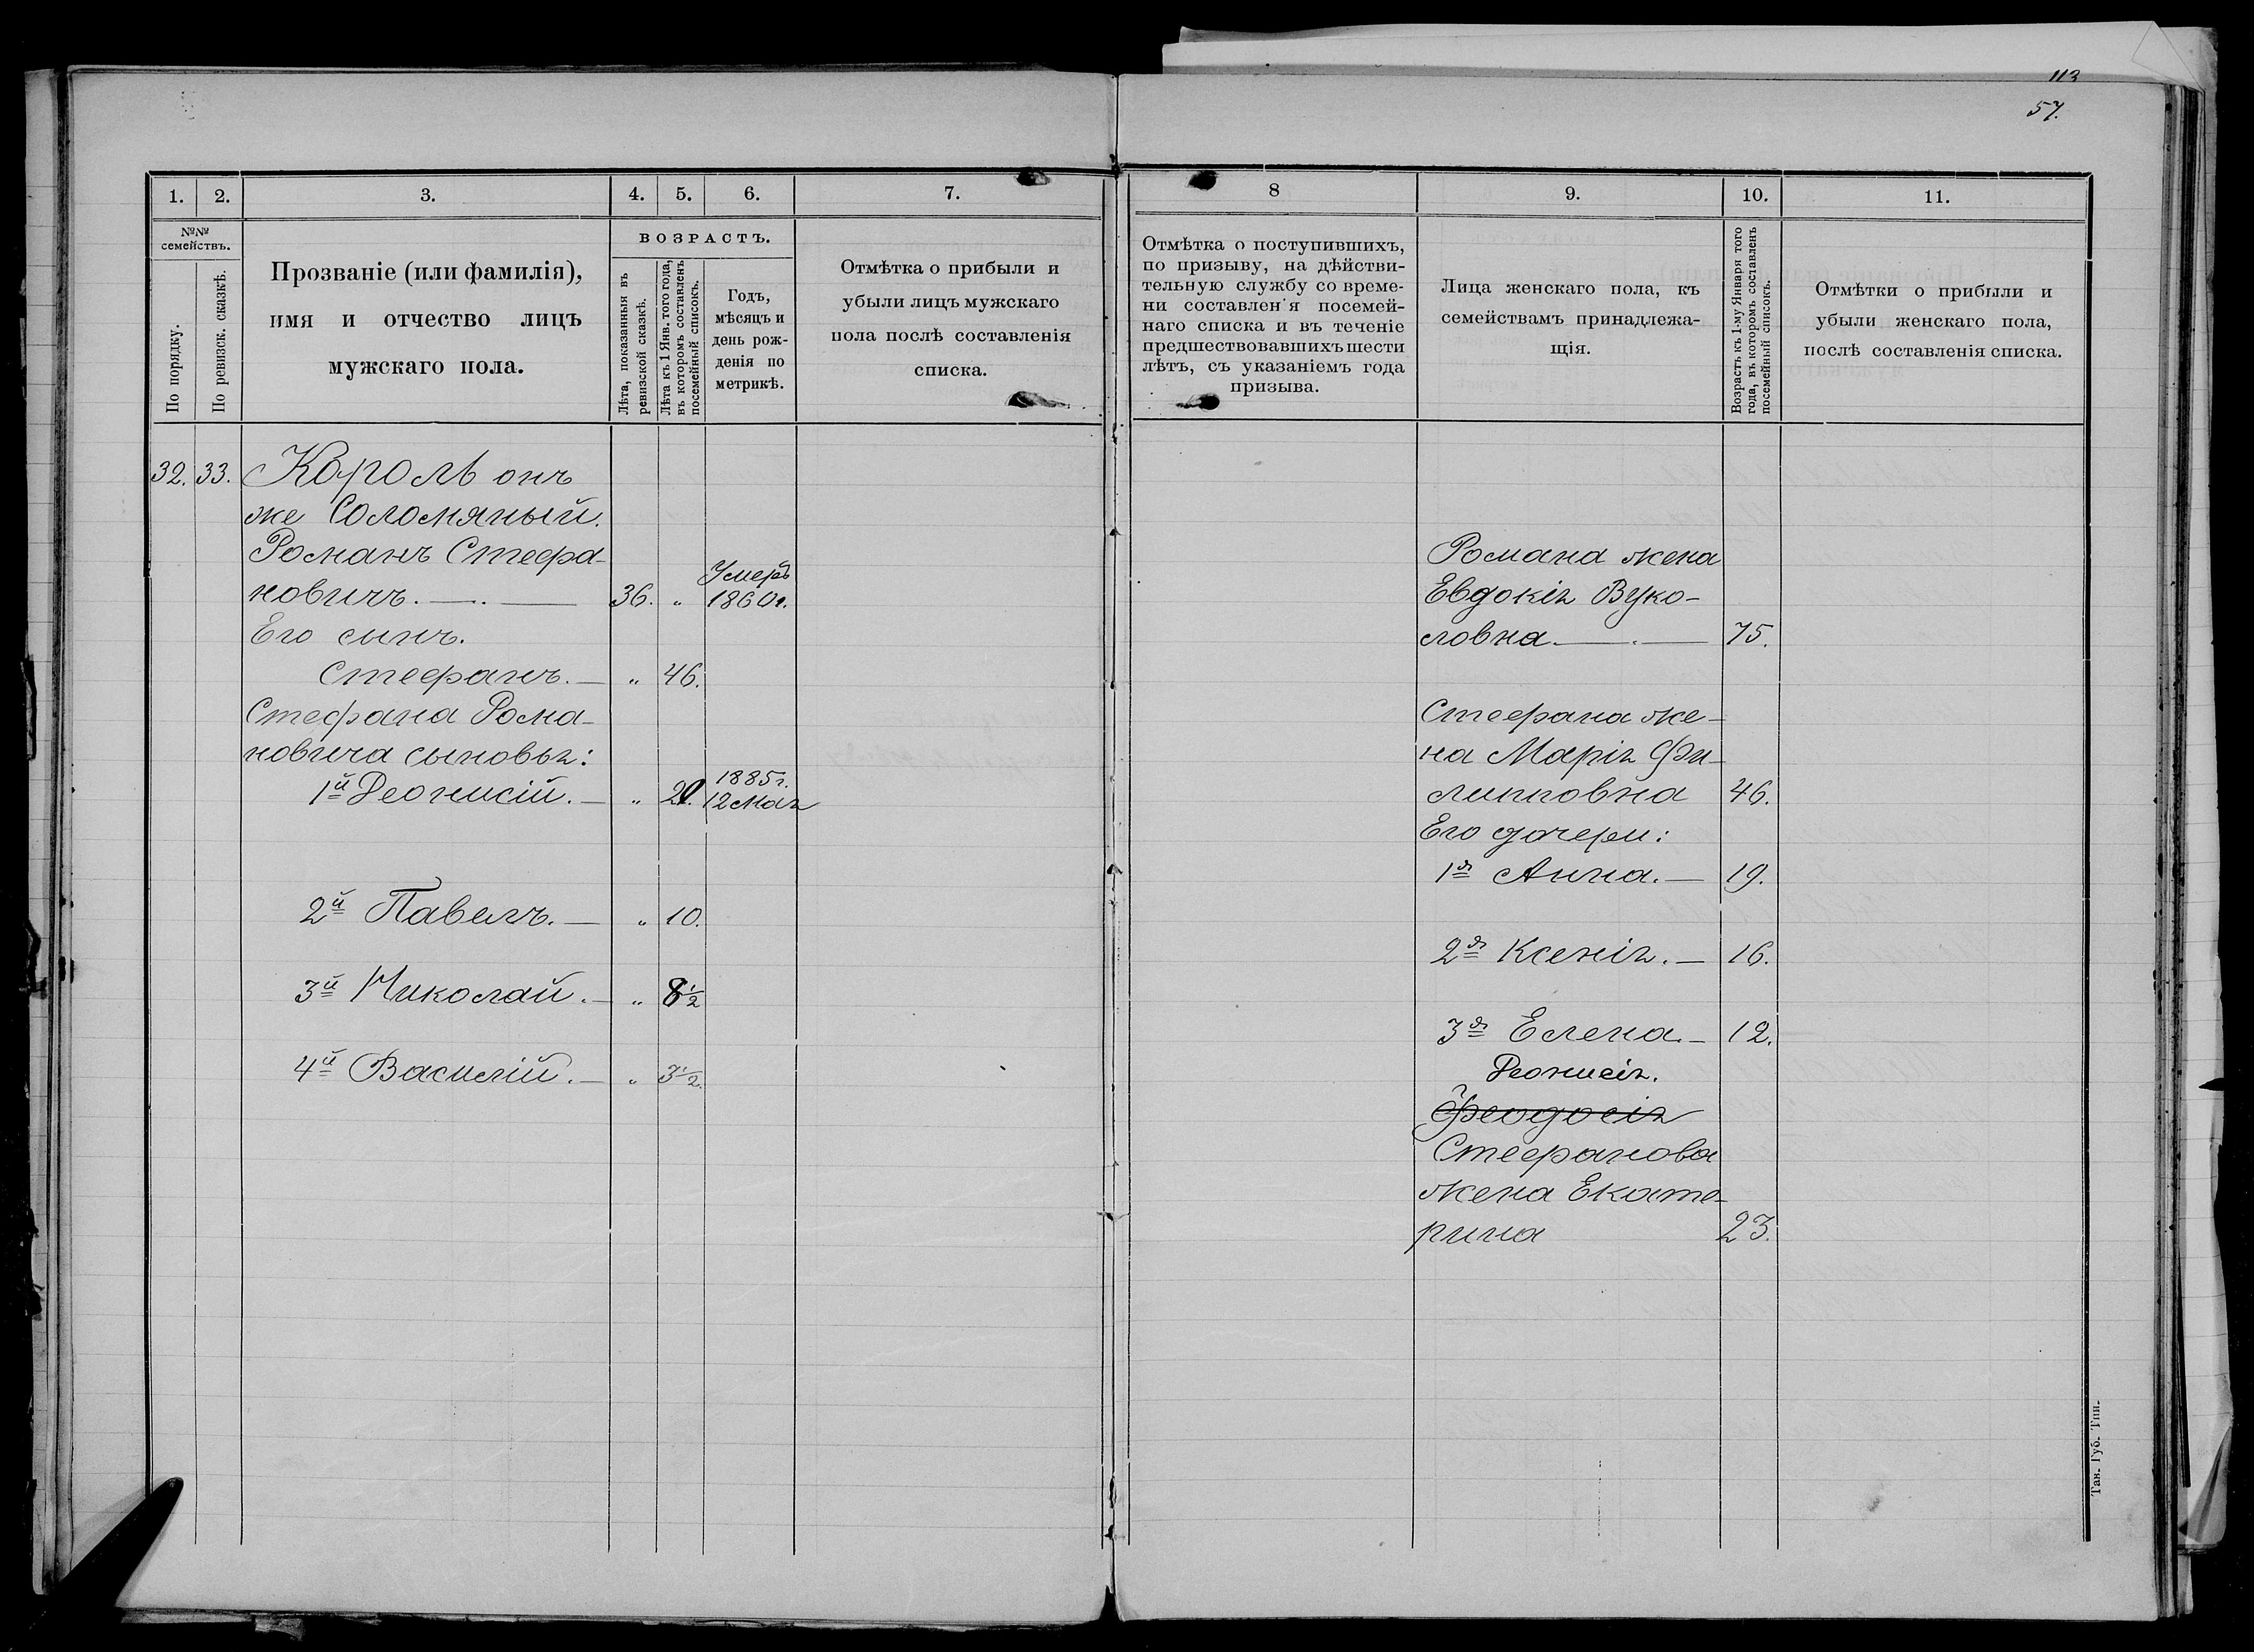 113
57.
1.
2.
3.
4.
5.
6.
7.
№№
семействъ.
По порядку.
По ревизск. сказкѣ.
Прозваніе (или фамилія),
имя и отчество лицъ
мужскаго пола.
ВОЗРАСТЪ.
Лѣта, показанныя въ
ревизской сказкѣ.
Лѣта къ 1 Янв. того года,
въ которомъ составленъ
посемейный списокъ.
Годъ,
мѣсяцъ и
день рож-
денія по
метрикѣ.
Отмѣтка о прибыли и
убыли лицъ мужскаго
пола послѣ составленія
списка.
32. 33. Король онъ
же Соломяный.
Романъ Стефа-
Умеръ
новичъ. — 36. „ 1860г.
Его сынъ.
Стефанъ. — „ 46.
Стефана Рома-
новича сыновья:
1885г.
1й Деонисій. — „ 20. 12 мая
2й Павелъ. — „ 10.
3й Николай. — „ 8½
4й Василій. — „ 3½.
8
9.
10.
11.
Отмѣтка о поступившихъ,
по призыву, на дѣйстви-
тельную службу со време-
ни составленія посемей-
наго списка и въ теченіе
предшествовавшихъ шести
лѣтъ, съ указаніемъ года
призыва.
Лица женскаго пола, къ
семействамъ принадлежа-
щія.
Возрастъ къ 1-му Января того
года, въ которомъ составленъ
посемейный списокъ.
Отмѣтки о прибыли и
убыли женскаго пола,
послѣ составленія списка.
Романа жена
Евдокія Вуко-
ловна — 75.
Стефана же-
на Марія Фи-
липповна 46.
Его дочери:
1я Анна. — 19.
2я Ксенія. — 16.
3я Елена. — 12.
Деонисія.
Феодосія
Стефанова
жена Екате-
рина 23.
Тав. Губ. Тип.